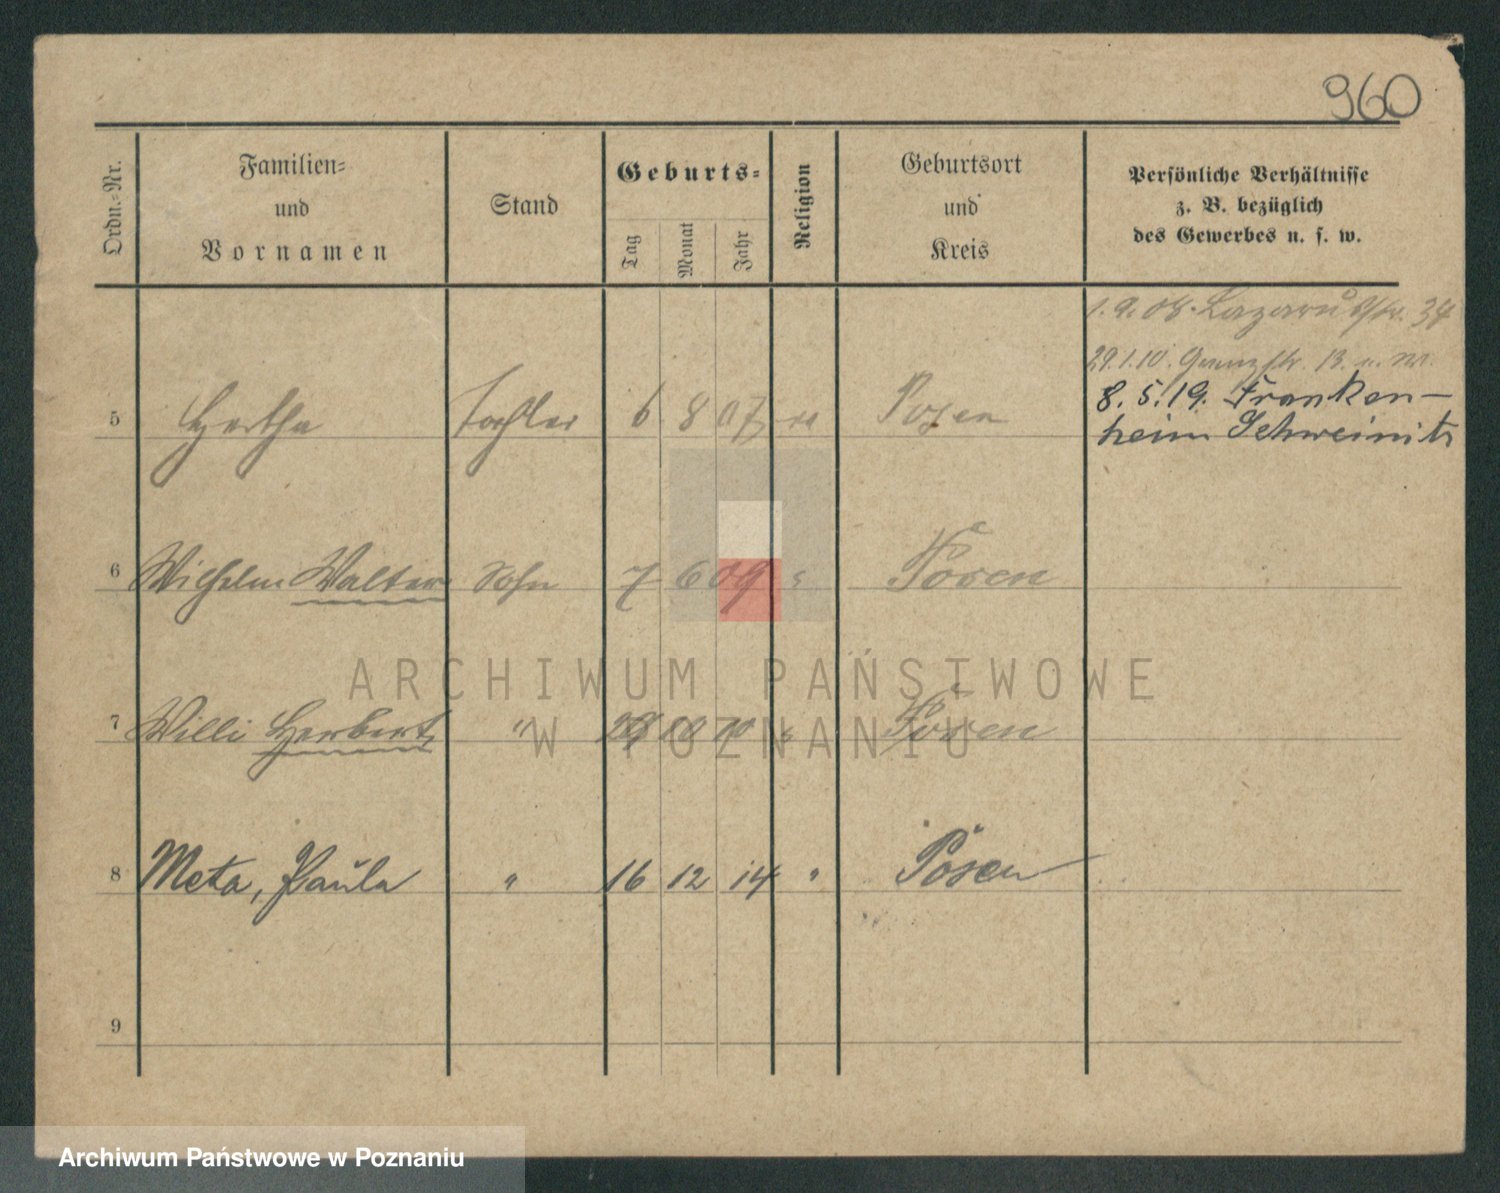 960
Ordn.-Nr.
Familien-
und
Vornamen
Stand
Geburts-
Tag
Monat
Jahr
Religion
Geburtsort
und
Kreis
Persönliche Verhältnisse
z. B. bezüglich
des Gewerbes u. s. w.
1. 9. 08. Lazarusstr. 34
29.1.10. Grenzstr. 13
8. 5. 19. Franken-
heim Schweinitz
5 Hertha Tochter 6 8 07 Posen
6 Wilhelm Walter Sohn 7 6 09 " Posen
7 Willi Herbert " 10 10 " Posen
8 Meta, Paula " 16 12 14 " Posen
9
ARCHIWUM PAŃSTWOWE
W POZNANIU
Archiwum Państwowe w Poznaniu